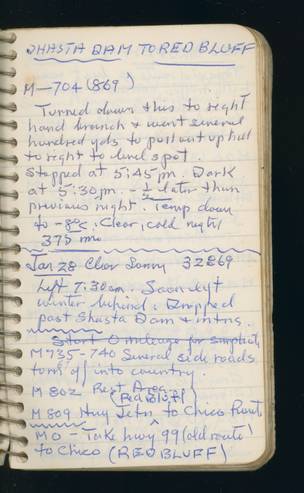 SHASTA DAM TO RED BLUFF
M-704 (869)
Turned down this to right
hand branch & went several
hundred yds to pullout up hill
to right to level spot.
Stopped at 5:45 pm. Dark
at 5:30 pm. - ½ later than
previous night. Temp down
to -8°C. Clear, cold night
375 mi
Jan 28 Clear Sunny 32869
Left 7:30 am. Soon left
winter behind. Dropped
past Shasta Dam & mtns.
Start 0 mileage for simplicity
M735-740 Several side roads
turn off into country.
M 802 Rest Area
(Red Bluff)
M 809 Hwy Jctn to Chico Route
M0 - Take hwy 99 (old route)
to Chico (RED BLUFF)